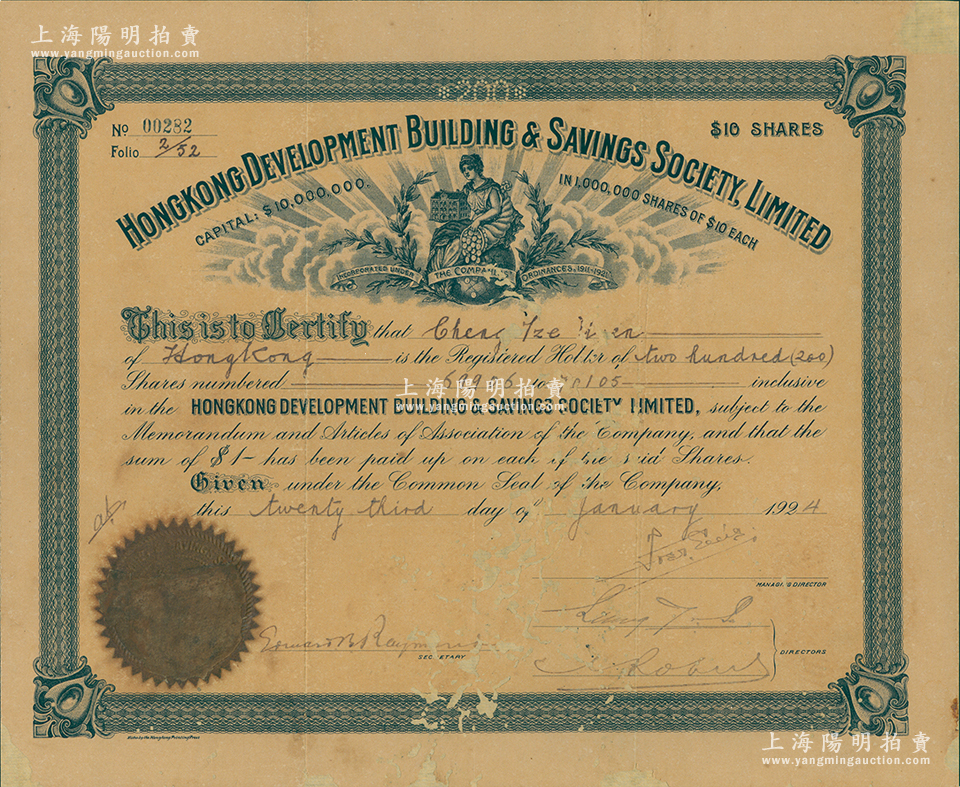 上海陽明拍賣
www.yangmingauction.com
200
No 00282
Folio 2/52
$10 SHARES
HONGKONG DEVELOPMENT BUILDING & SAVINGS SOCIETY, LIMITED
CAPITAL: $10,000,000.
IN 1,000,000 SHARES OF $10 EACH
INCORPORATED UNDER THE COMPANIES ORDINANCES, 1911-1921
This is to Certify that Cheng Tze
of Hongkong is the Registered Holder of two hundred (200)
Shares numbered to inclusive
上海陽明拍賣
www.yangmingauction.com
in the HONGKONG DEVELOPMENT BUILDING & SAVINGS SOCIETY LIMITED, subject to the
Memorandum and Articles of Association of the Company, and that the
sum of $1- has been paid up on each of the said Shares.
Given under the Common Seal of the Company,
this twenty third day of January 1924
MANAGING DIRECTOR
Edward B Raymond
SECRETARY
DIRECTORS
上海陽明拍賣
www.yangmingauction.com